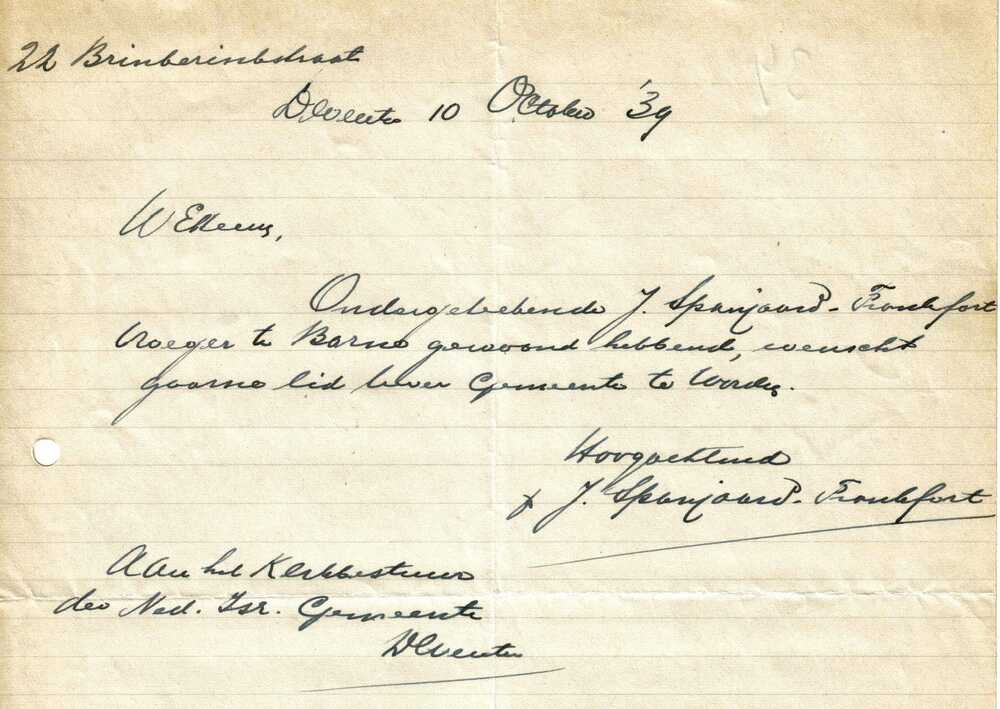 22 Brinkerinkstraat
Deventer 10 October '39
WEHeeren,
Ondergeteekende J. Spanjaard-Frankfort
vroeger te Borne gewoond hebbend, wenscht
gaarne lid Uwer Gemeente te Worden.
Hoogachtend
J. Spanjaard-Frankfort
Aan het Kerkbestuur
der Ned. Isr. Gemeente
Deventer